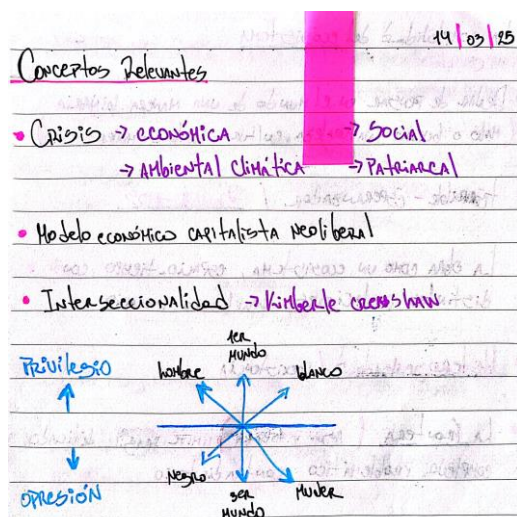 14|03|25
Conceptos Relevantes
• Crisis → económica → Social
→ Ambiental Climática → Patriarcal
• Modelo económico capitalista neoliberal
• Interseccionalidad → Kimberle Crenshaw
1er
Mundo
Privilegio hombre blanco
Negro Mujer
Opresión 3er
Mundo